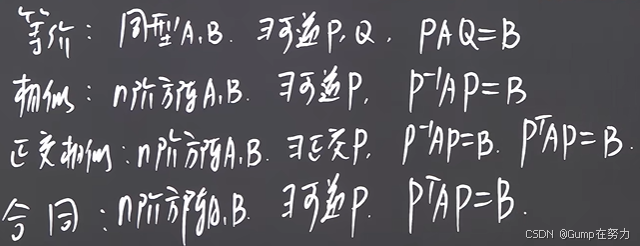 等价：同型A,B. ∃可逆P,Q, PAQ=B
相似：n阶方阵A,B. ∃可逆P, P⁻¹AP=B
正交相似：n阶方阵A,B. ∃正交P, P⁻¹AP=B. PᵀAP=B.
合同：n阶方阵A,B. ∃可逆P. PᵀAP=B.
CSDN @Gump在努力